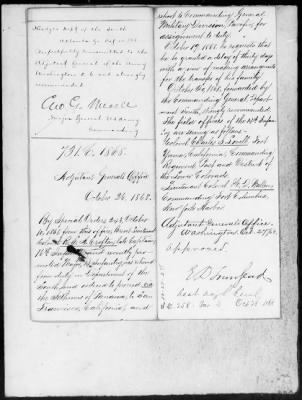 Headqrs Dept of the South
Atlanta Ga Oct 20 1868
Respectfully forwarded to the
Adjutant General of the Army
Washington D.C. and strongly
recommended.
Geo G Meade
Major General U.S. Army
Commanding
731. C. 1868.
Adjutant General's Office
October 26, 1868.
By Special Orders 243, October
10, 1868 from this office, Brevet Lieutenant
Colonel Crofton, late Captain
16th Infantry and recently pro-
moted Major, is relieved
from duty in Department of the
South, and ordered to proceed via
the Isthmus of Panama, to San
Francisco, California, and
report to Commanding General
Military Division, Pacific, for
assignment to duty.
October 19, 1868. he requests that
he be granted a delay of thirty days
with a view of making arrangements
for the transfer of his family.
October 20, 1868, forwarded by
the Commanding General, Depart-
ment South, strongly recommended.
The field officers of the Inf-
antry are serving as follows:
Colonel Charles S. Lovell, Fort
Yuma, California, Commanding
Regiment, Post and District of
the Lower Colorado.
Lieutenant Colonel H. D. Wallen,
Commanding Fort Columbus,
New York Harbor.
Adjutant General's Office.
Washington Oct. 27/68.
approved.
E D Townsend
Oct 28 1868